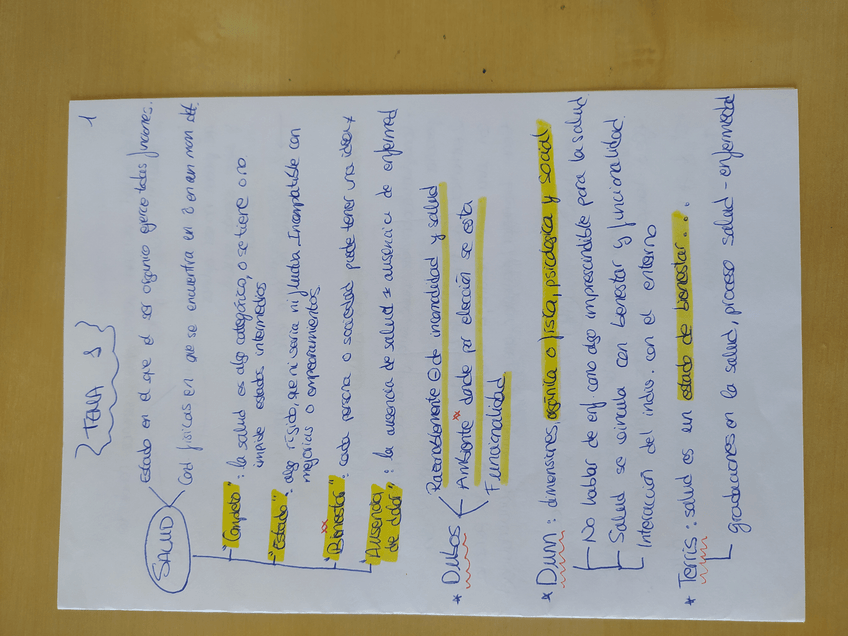 1
TEMA 1
SALUD
Estado en el que el ser orgánico ejerce todas funciones.
Cond físicas en que se encuentra en
"Completo": la salud es algo categórico, o se tiene o no
impide estados intermedios
"Estado": algo rígido, que ni varía ni fluctúa. Incompatible con
mejorías o empeoramientos
"Bienestar": cada persona o sociedad puede tener una idea
"Ausencia de dolor": la ausencia de salud ≠ ausencia de enfermed
* Dubos
Razonablemente ⊖ de incomodidad y salud
Ambiente donde por elección se esta
Funcionalidad
* Dunn: dimensiones, orgánica o física, psicológica y social
No hablar de enf. como algo imprescindible para la salud
Salud se vincula con bienestar y funcionalidad
Interacción del indiv. con el entorno
* Terris: salud es un estado de bienestar...
graduaciones en la salud, proceso salud - enfermedad